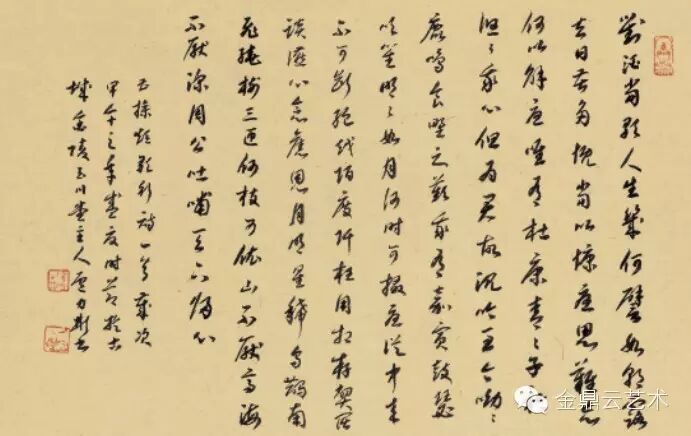 對酒當歌人生幾何譬如朝露
去日苦多慨當以慷憂思難忘
何以解憂唯有杜康青〻子衿
悠〻我心但為君故沉吟至今呦〻
鹿鳴食野之苹我有嘉賓鼓瑟
吹笙明〻如月何時可掇憂從中來
不可斷絕越陌度阡枉用相存契闊
談讌心念舊恩月明星稀烏鵲南
飛繞樹三匝何枝可依山不厭高海
不厭深周公吐哺天下歸心
短歌行詩一首歲次
甲午之年春夏時節於古
城金陵主人書
金鼎云艺术